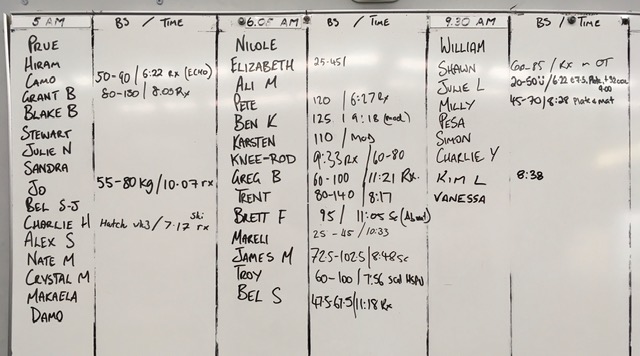 5 AM BS / TIME 6.05 AM BS / TIME 9.30 AM BS / TIME
PRUE
HIRAM
CAMO 50-90 / 6:22 Rx (ECHO)
GRANT B 80-130 / 8.05 Rx
BLAKE B
STEWART
JULIE N
SANDRA
JO 55-80 kg / 10.07 rx
BEL S-J
CHARLIE H Hatch vk3 / 7:17 ski rx
ALEX S
NATE M
CRYSTAL M
MAKAELA
DAMO
NICOLE
ELIZABETH 25-45 /
ALI M
PETE 120 / 6:27 Rx
BEN K 125 / 9:18 (mod)
KARSTEN 110 / Mod
KNEE-ROD 9:33 Rx / 60-80
GREG B 60-100 / 11:21 Rx.
TRENT 80-140 / 8:17
BRETT F 95 / 11:05 Sc
MARELI 25 - 45 / 10:33
JAMES M 72.5-102.5 / 8:48 Sc
TROY 60-100 / 7:56 Scd HSPU
BEL S 47.5-67.5 / 11:18 Rx
WILLIAM
SHAWN 60-85 / Rx in OT
JULIE L 20-50 / 6:22
MILLY 45-70 / 8:28 Plate & mat
PESA
SIMON
CHARLIE Y
KIM L 8:38
VANESSA